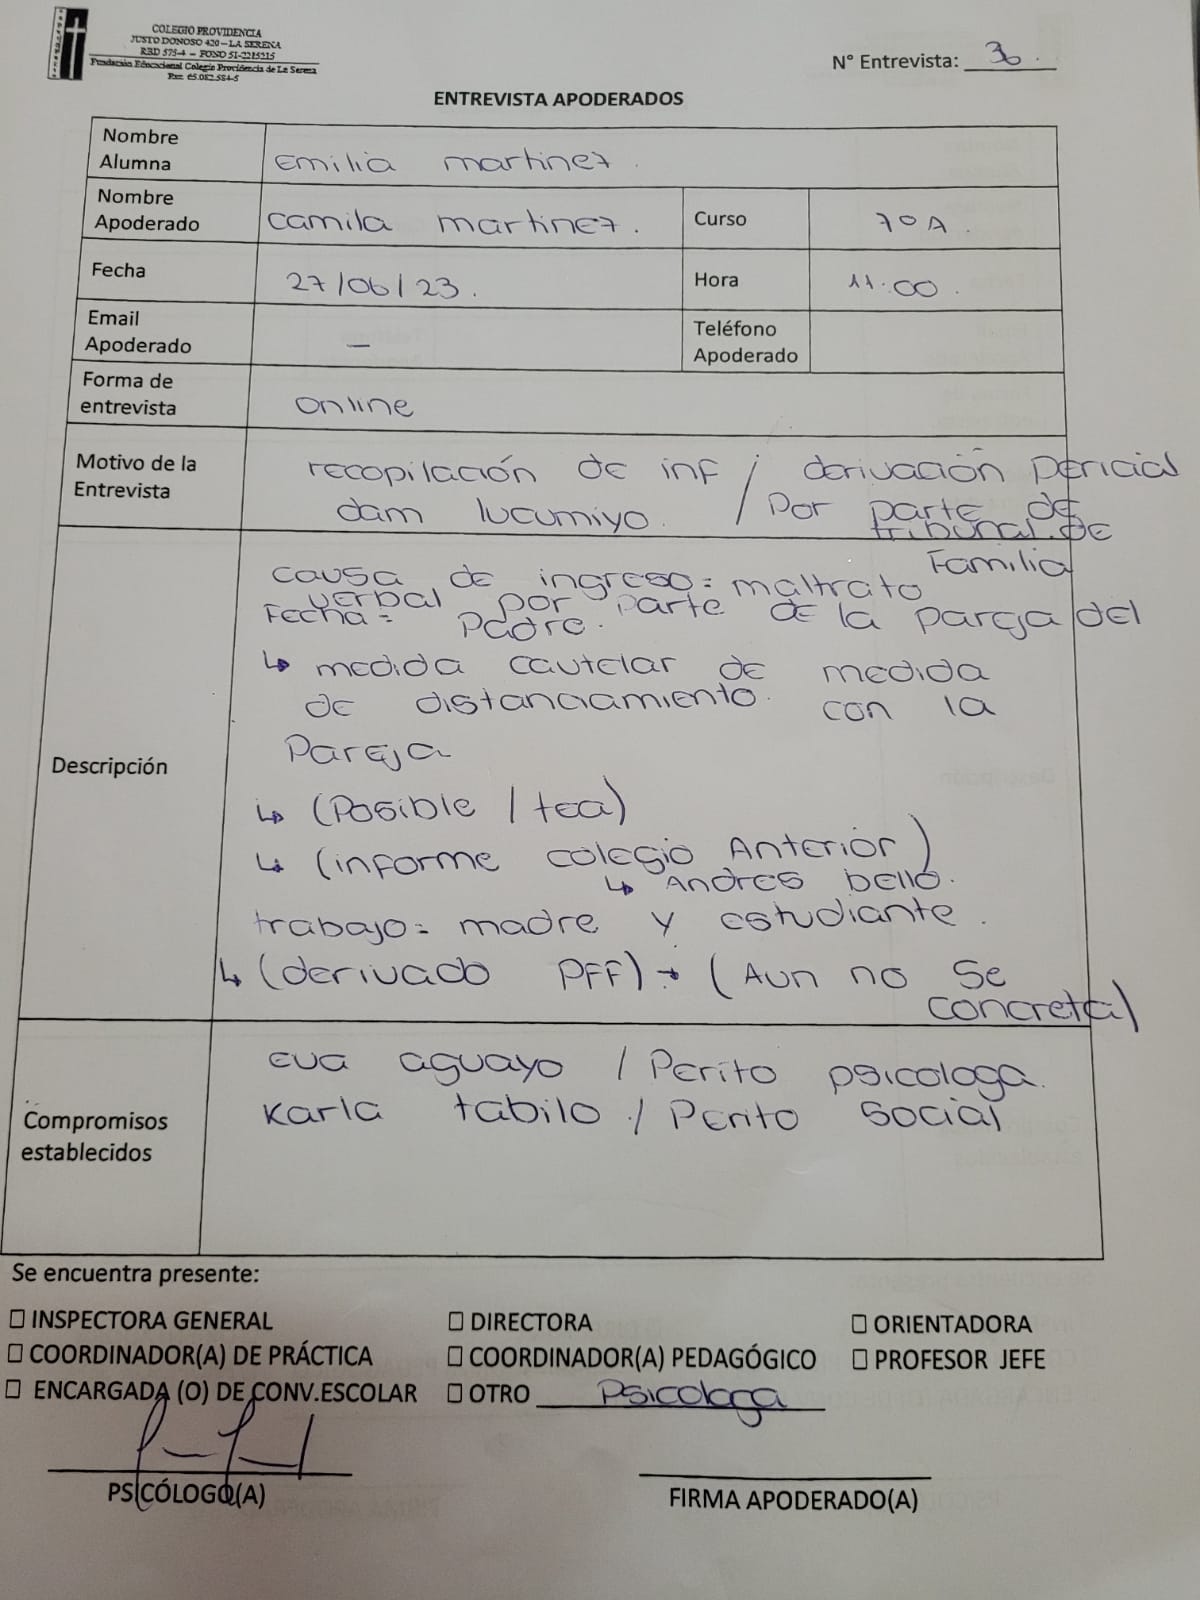 COLEGIO PROVIDENCIA
JUSTO DONOSO 420 – LA SERENA
RBD 575-4 – FONO 51-2215215
Fundación Educacional Colegio Providencia de La Serena
Rut: 65.082.584-5
N° Entrevista: 36.
ENTREVISTA APODERADOS
Nombre Alumna
Emilia martinez.
Nombre Apoderado
camila martinez.
Curso
7°A.
Fecha
27/06/23.
Hora
11:00.
Email Apoderado
–
Teléfono Apoderado
Forma de entrevista
online
Motivo de la Entrevista
recopilación de inf / derivación pericial
dam lucumiyo. / Por parte de
tribunal. de
Familia
Descripción
causa de ingreso: maltrato
verbal por parte de la pareja del
Fecha: Padre.
↳ medida cautelar de medida
de distanciamiento. con la
Pareja
↳ (Posible / tea)
↳ (informe colegio Anterior)
↳ Andres bello.
trabajo: madre y estudiante.
↳ (derivado PFF) → (Aun no se
concreta)
Compromisos establecidos
eva aguayo / Perito psicologa.
Karla tabilo. / Perito social
Se encuentra presente:
☐ INSPECTORA GENERAL ☐ DIRECTORA ☐ ORIENTADORA
☐ COORDINADOR(A) DE PRÁCTICA ☐ COORDINADOR(A) PEDAGÓGICO ☐ PROFESOR JEFE
☐ ENCARGADA (O) DE CONV.ESCOLAR ☐ OTRO Psicologa
PSICÓLOGO(A)
FIRMA APODERADO(A)